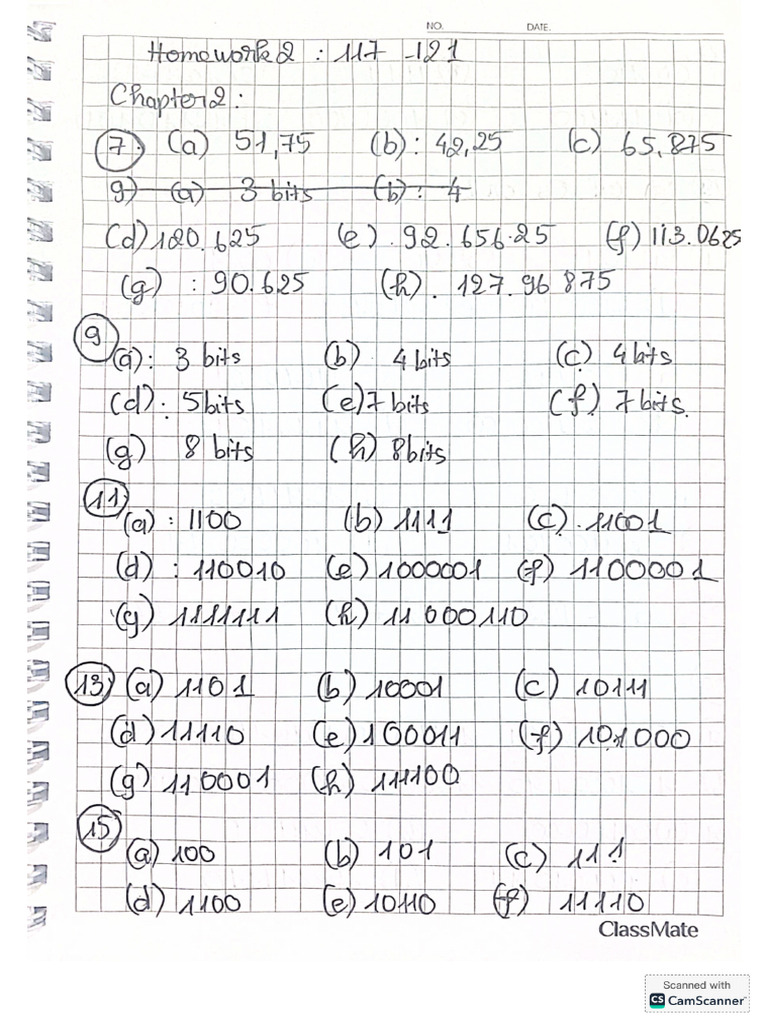 NO. DATE.
Homework2 : 117 -121
Chapter2:
7. (a) 51,75 (b): 42,25 (c) 65.875
9) (a) 3 bits (b): 4
(d) 120.625 (e). 92.656.25 (f) 113.0625
(g) : 90.625 (h). 127.96875
9
(a): 3 bits (b) 4 bits (c) 4 bits
(d): 5bits (e) 7 bits (f) 7 bits.
(g) 8 bits (h) 8bits
11)
(a): 1100 (b) 1111 (c). 11001
(d) : 110010 (e) 1000001 (f) 1100001
(g) 1111111 (h) 11000110
13) (a) 1101 (b) 10001 (c) 10111
(d) 11110 (e) 100011 (f) 101000
(g) 110001 (h) 111100
15)
(a) 100 (b) 101 (c) 111
(d) 1100 (e) 10110 (f) 11110
ClassMate
Scanned with
CS CamScanner